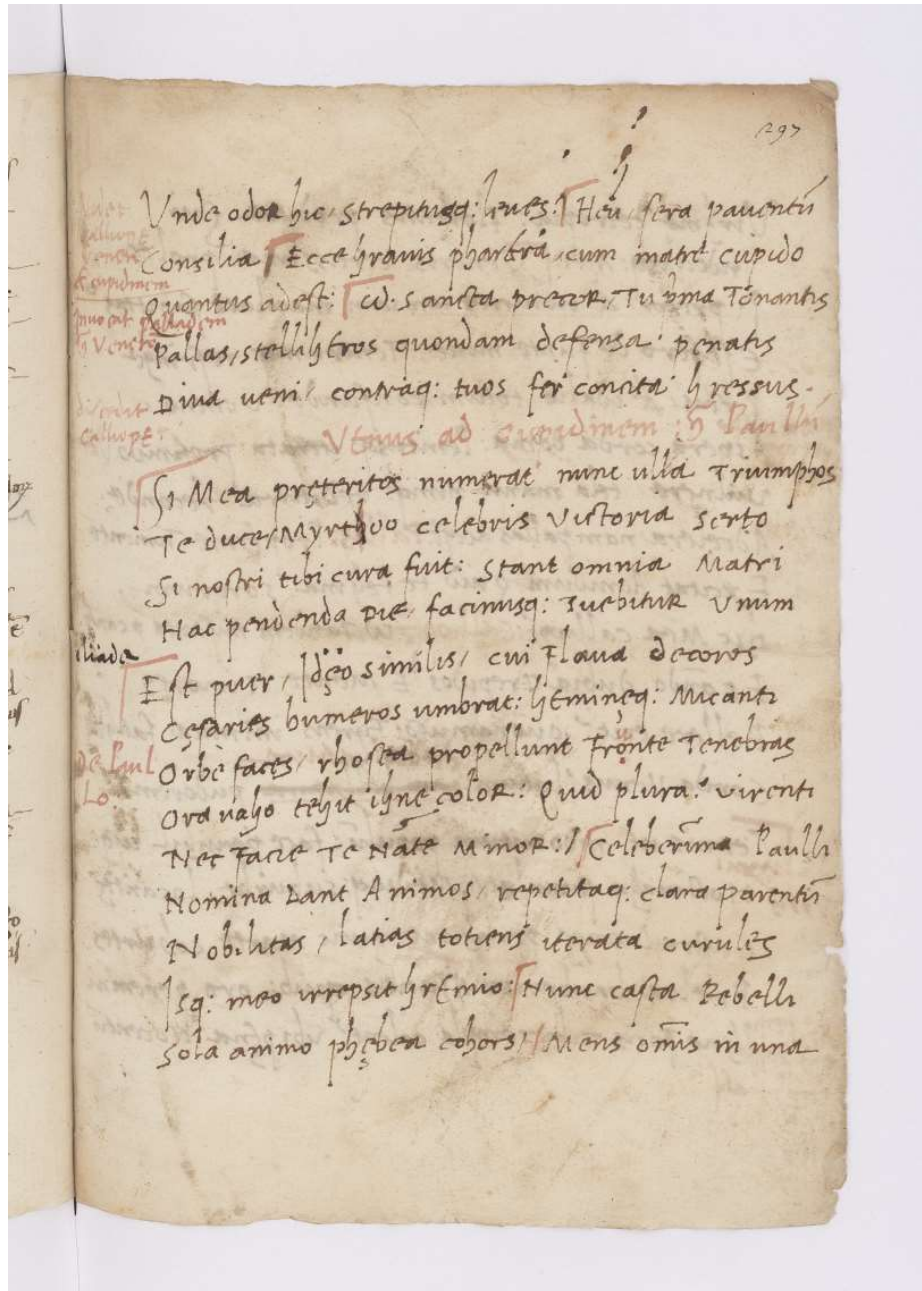 297
Vnde odor hic, strepitusq: leves: Heu, sera paventũ
Consilia Ecce gravis pharetra, cum matre cupido
Quantus adest: Sancta precor, Tu Tonantis
Pallas, stelligeros quondam defensa penatis
Diva veni, contraq: tuos fer concita gressus.
Venus ad cupidinem Paullũ
Si Mea pręteritos numerat nunc ulla Triumphos
Te duce, Myrthoo celebris Victoria serto
Si nostri tibi cura fuit: stant omnia Matri
Hac pendenda Die, facinusq: Iuebitur Vnum
iliade
Est puer, Idęo similis, cui Flava decoros
Cęsaries humeros umbrat: gemineq: Micanti
Orbe faces, rhosea propellunt Fronte Tenebras
De Paul
Lo.
Ora vago tegit igne color: Quid plura? virenti
Nec Facie Te Nate Minor: Celeberima Paulli
Nomina Dant Animos, repetitaq: clara parentũ
Nobilitas, latias totiens iterata curules
Isq: meo irrepsit gremio: Nunc casta Rebelli
Sola animo phębea cohors, Mens omĩs in una